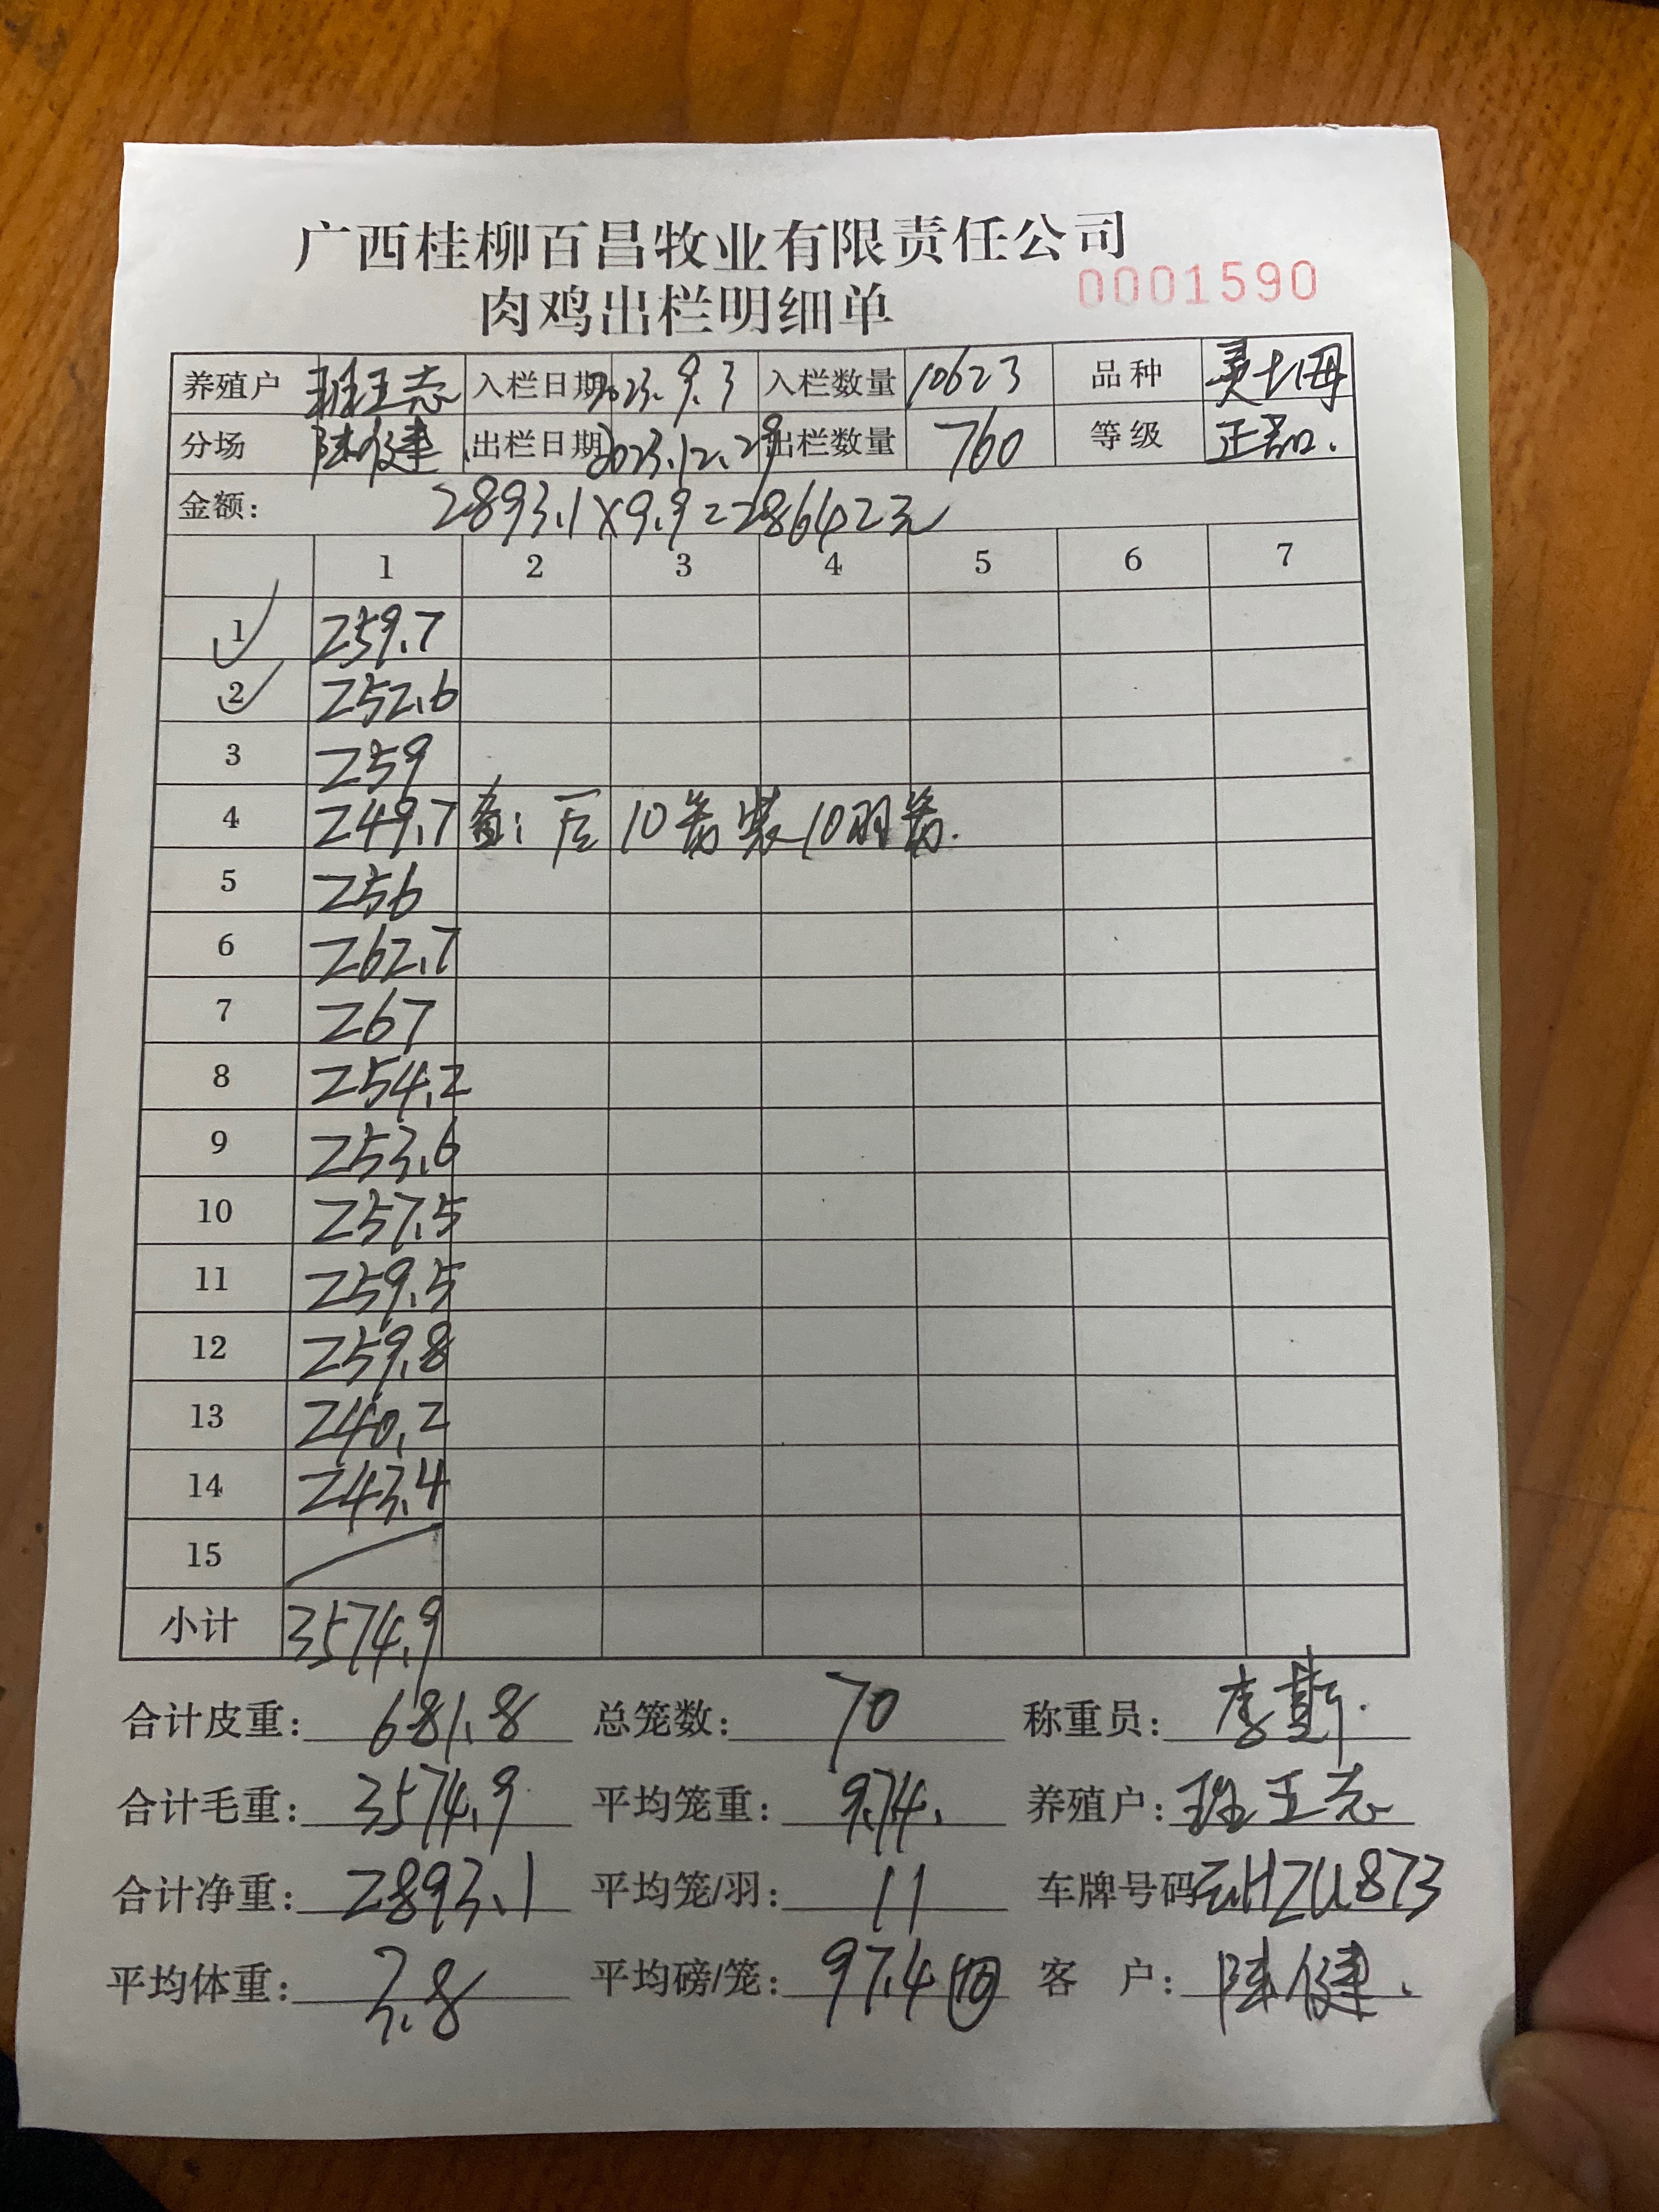 广西桂柳百昌牧业有限责任公司
肉鸡出栏明细单 0001590
养殖户 班王志 入栏日期 2023.9.3 入栏数量 10623 品种 灵土母
分场 陆健 出栏日期 2023.12.29 出栏数量 760 等级 正品.
金额: 2893.1×9.9=28642元
1 2 3 4 5 6 7
1 259.7
2 252.6
3 259
4 249.7 备: 后10笼装10羽笼.
5 256
6 262.7
7 267
8 254.2
9 253.6
10 257.5
11 259.5
12 259.8
13 240.2
14 243.4
15
小计 3574.9
合计皮重: 681.8 总笼数: 70 称重员: 李
合计毛重: 3574.9 平均笼重: 9.74. 养殖户: 班王志
合计净重: 2893.1 平均笼/羽: 11 车牌号码 HZU873
平均体重: 3.8 平均磅/笼: 97.4 客户: 陆健.